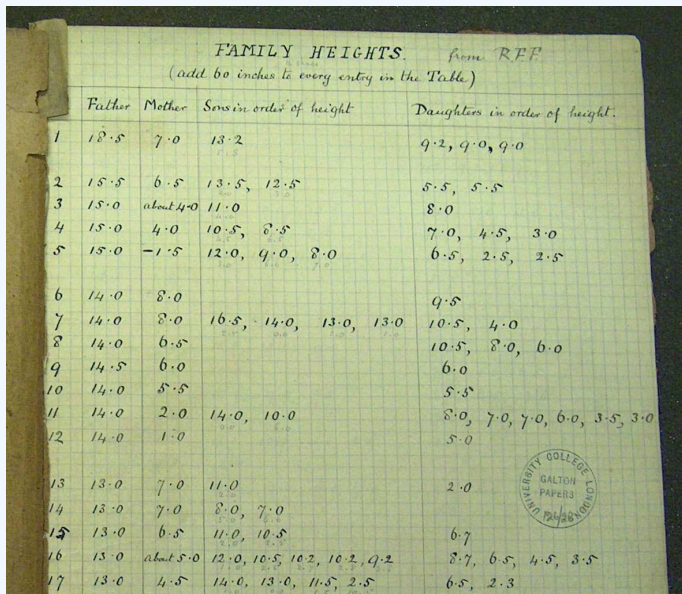 FAMILY HEIGHTS. from R.F.F.
(add 60 inches to every entry in the Table)
Father Mother Sons in order of height Daughters in order of height.
1 18.5 7.0 13.2 9.2, 9.0, 9.0
2 15.5 6.5 13.5, 12.5 5.5, 5.5
3 15.0 about 4.0 11.0 8.0
4 15.0 4.0 10.5, 8.5 7.0, 4.5, 3.0
5 15.0 -1.5 12.0, 9.0, 8.0 6.5, 2.5, 2.5
6 14.0 8.0 9.5
7 14.0 8.0 16.5, 14.0, 13.0, 13.0 10.5, 4.0
8 14.0 6.5 10.5, 8.0, 6.0
9 14.5 6.0 6.0
10 14.0 5.5 5.5
11 14.0 2.0 14.0, 10.0 8.0, 7.0, 7.0, 6.0, 3.5, 3.0
12 14.0 1.0 5.0
13 13.0 7.0 11.0 2.0
14 13.0 7.0 8.0, 7.0
15 13.0 6.5 11.0, 10.5 6.7
16 13.0 about 5.0 12.0, 10.5, 10.2, 10.2, 9.2 8.7, 6.5, 4.5, 3.5
17 13.0 4.5 14.0, 13.0, 11.5, 2.5 6.5, 2.3
UNIVERSITY COLLEGE LONDON
GALTON
PAPERS